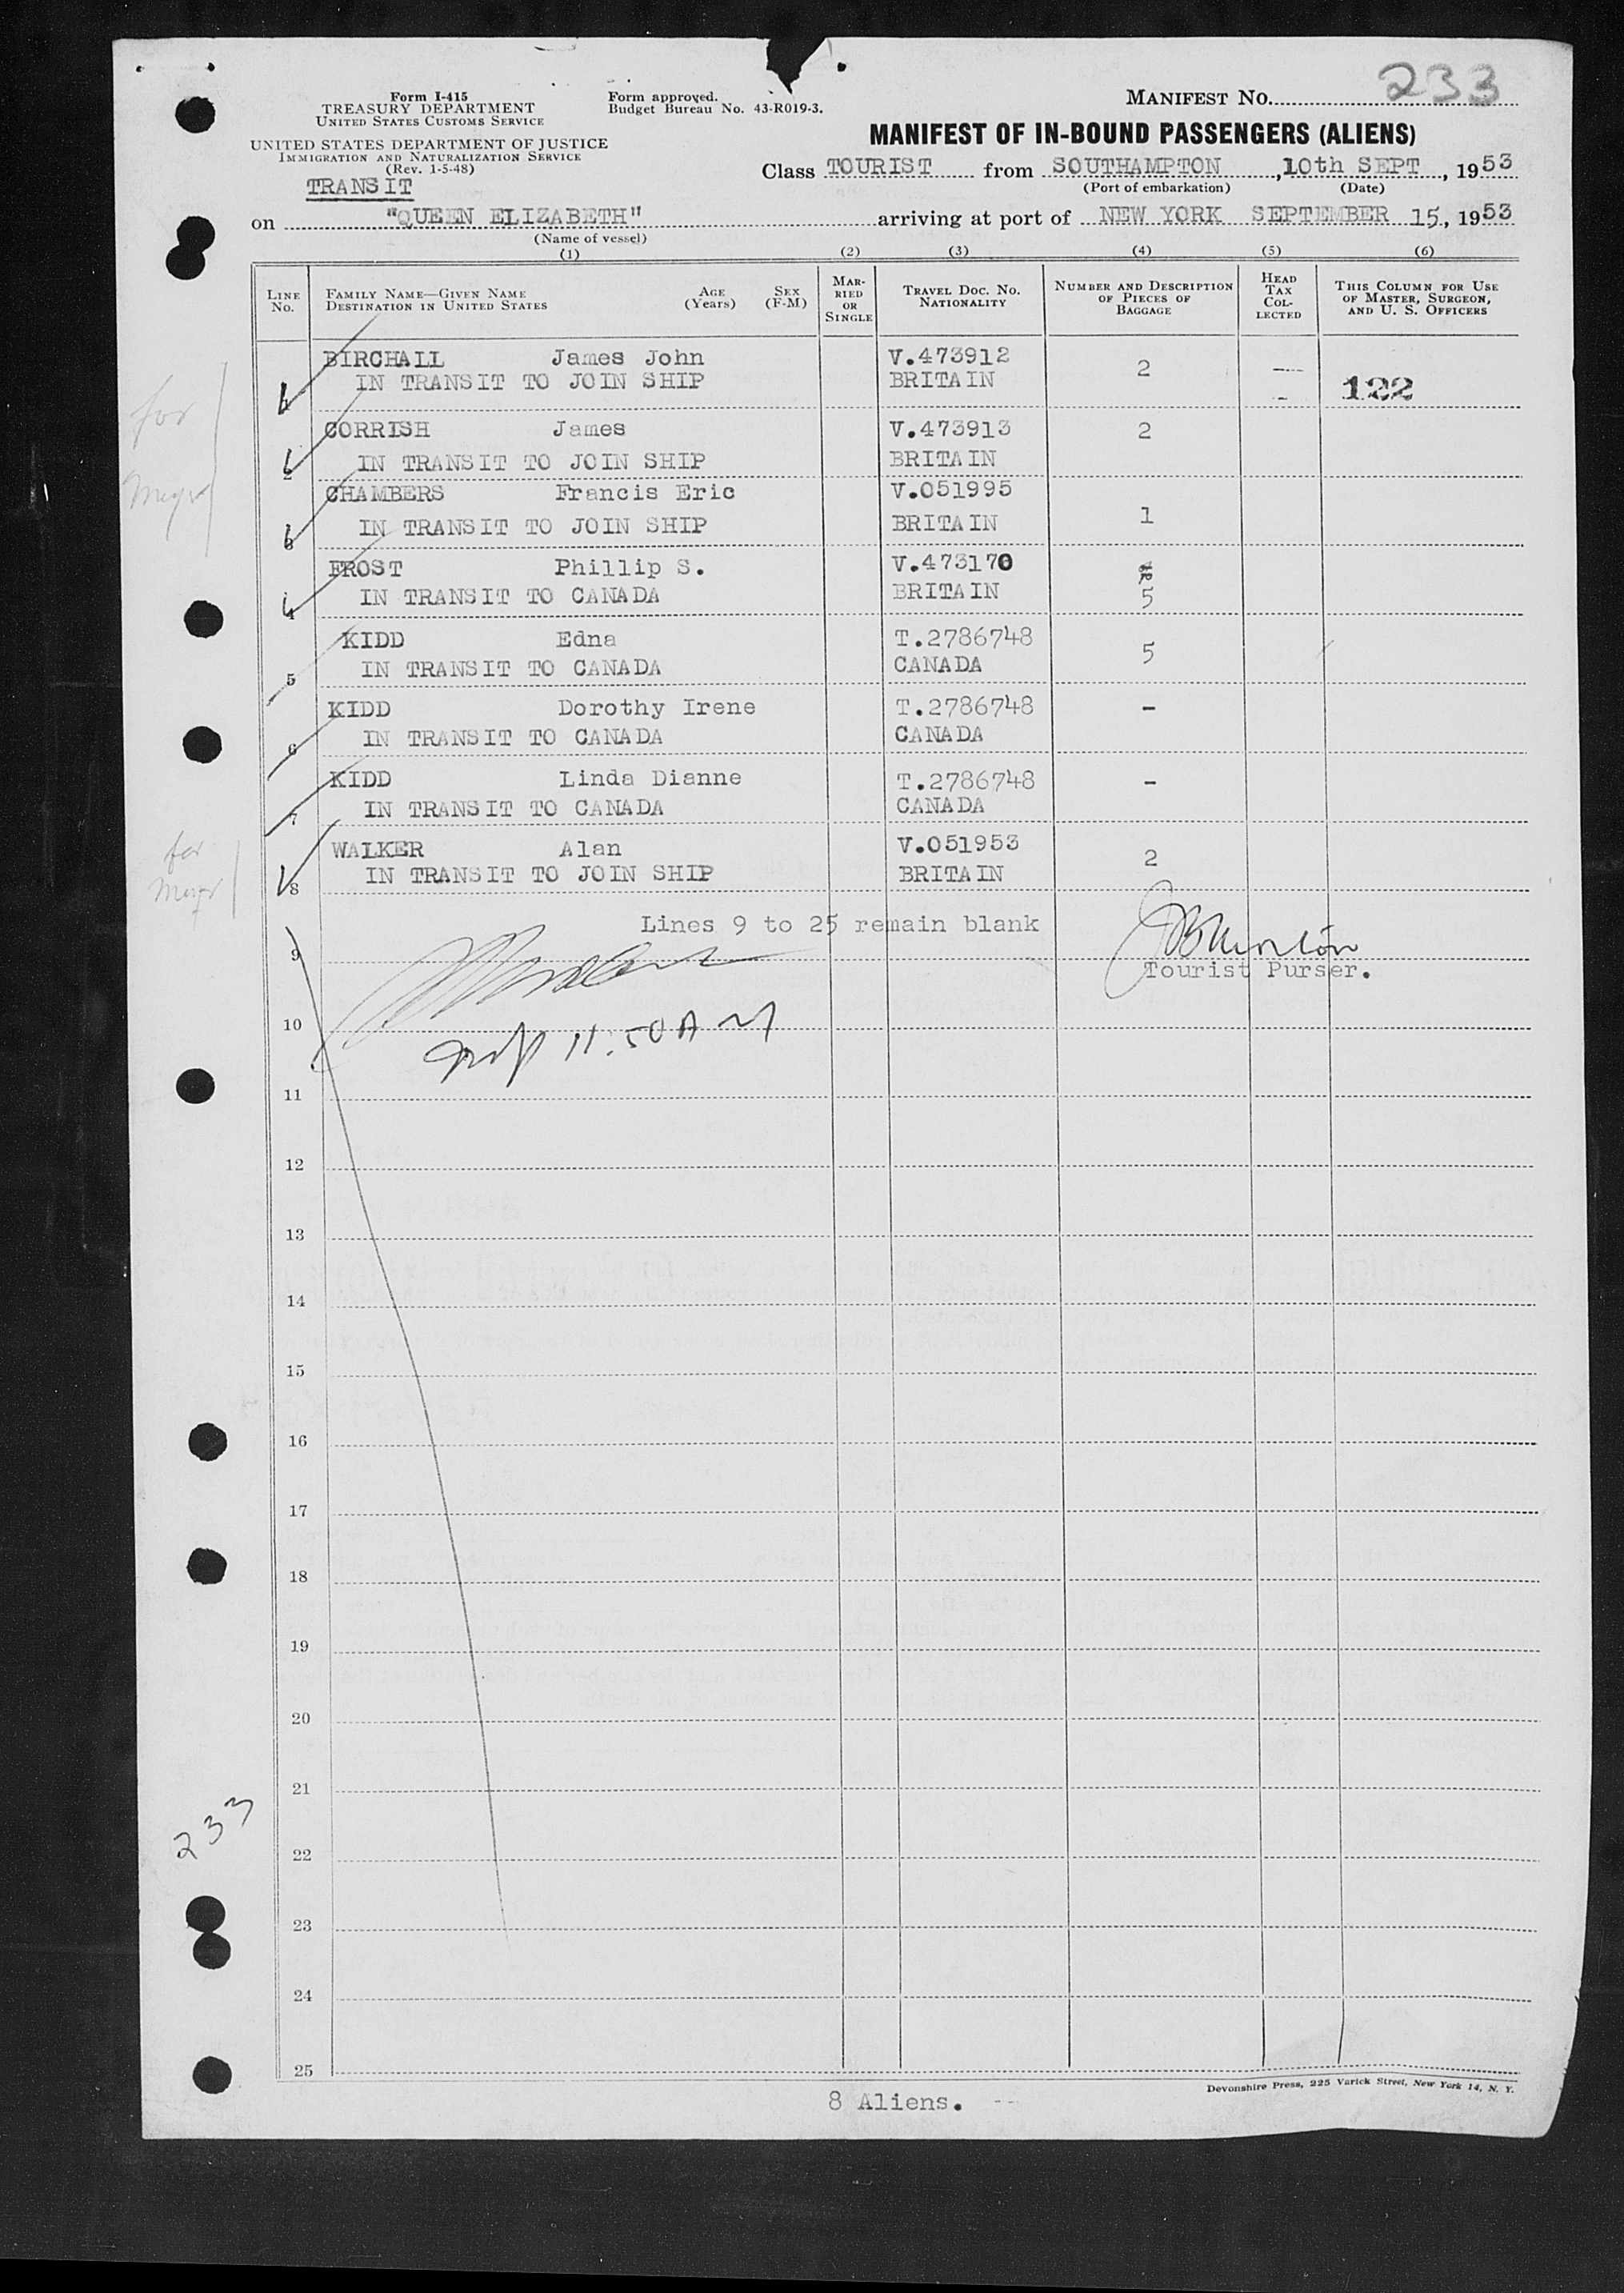 233
Form I-415
TREASURY DEPARTMENT
UNITED STATES CUSTOMS SERVICE
Form approved.
Budget Bureau No. 43-R019-3.
MANIFEST NO.
UNITED STATES DEPARTMENT OF JUSTICE
IMMIGRATION AND NATURALIZATION SERVICE
(Rev. 1-5-48)
TRANSIT
MANIFEST OF IN-BOUND PASSENGERS (ALIENS)
Class TOURIST from SOUTHAMPTON, 10th SEPT, 1953
(Port of embarkation) (Date)
on "QUEEN ELIZABETH" arriving at port of NEW YORK SEPTEMBER 15, 1953
(Name of vessel)
(1) (2) (3) (4) (5) (6)
LINE NO.
FAMILY NAME—GIVEN NAME
DESTINATION IN UNITED STATES
AGE (Years)
SEX (F-M)
MARRIED OR SINGLE
TRAVEL DOC. NO. NATIONALITY
NUMBER AND DESCRIPTION OF PIECES OF BAGGAGE
HEAD TAX COLLECTED
THIS COLUMN FOR USE OF MASTER, SURGEON, AND U. S. OFFICERS
BIRCHALL James John V.473912
IN TRANSIT TO JOIN SHIP BRITAIN 2 — 122
for
2 CORRISH James V.473913 2
IN TRANSIT TO JOIN SHIP BRITAIN
3 CHAMBERS Francis Eric V.051995
IN TRANSIT TO JOIN SHIP BRITAIN 1
4 FROST Phillip S. V.473170
IN TRANSIT TO CANADA BRITAIN 5
5 KIDD Edna T.2786748
IN TRANSIT TO CANADA CANADA 5
6 KIDD Dorothy Irene T.2786748 -
IN TRANSIT TO CANADA CANADA
7 KIDD Linda Dianne T.2786748 -
IN TRANSIT TO CANADA CANADA
for
8 WALKER Alan V.051953 2
IN TRANSIT TO JOIN SHIP BRITAIN
Lines 9 to 25 remain blank
9
Tourist Purser.
10
11:50 A M
11
12
13
14
15
16
17
18
19
20
21
233
22
23
24
25
Devonshire Press, 225 Varick Street, New York 14, N. Y.
8 Aliens. --